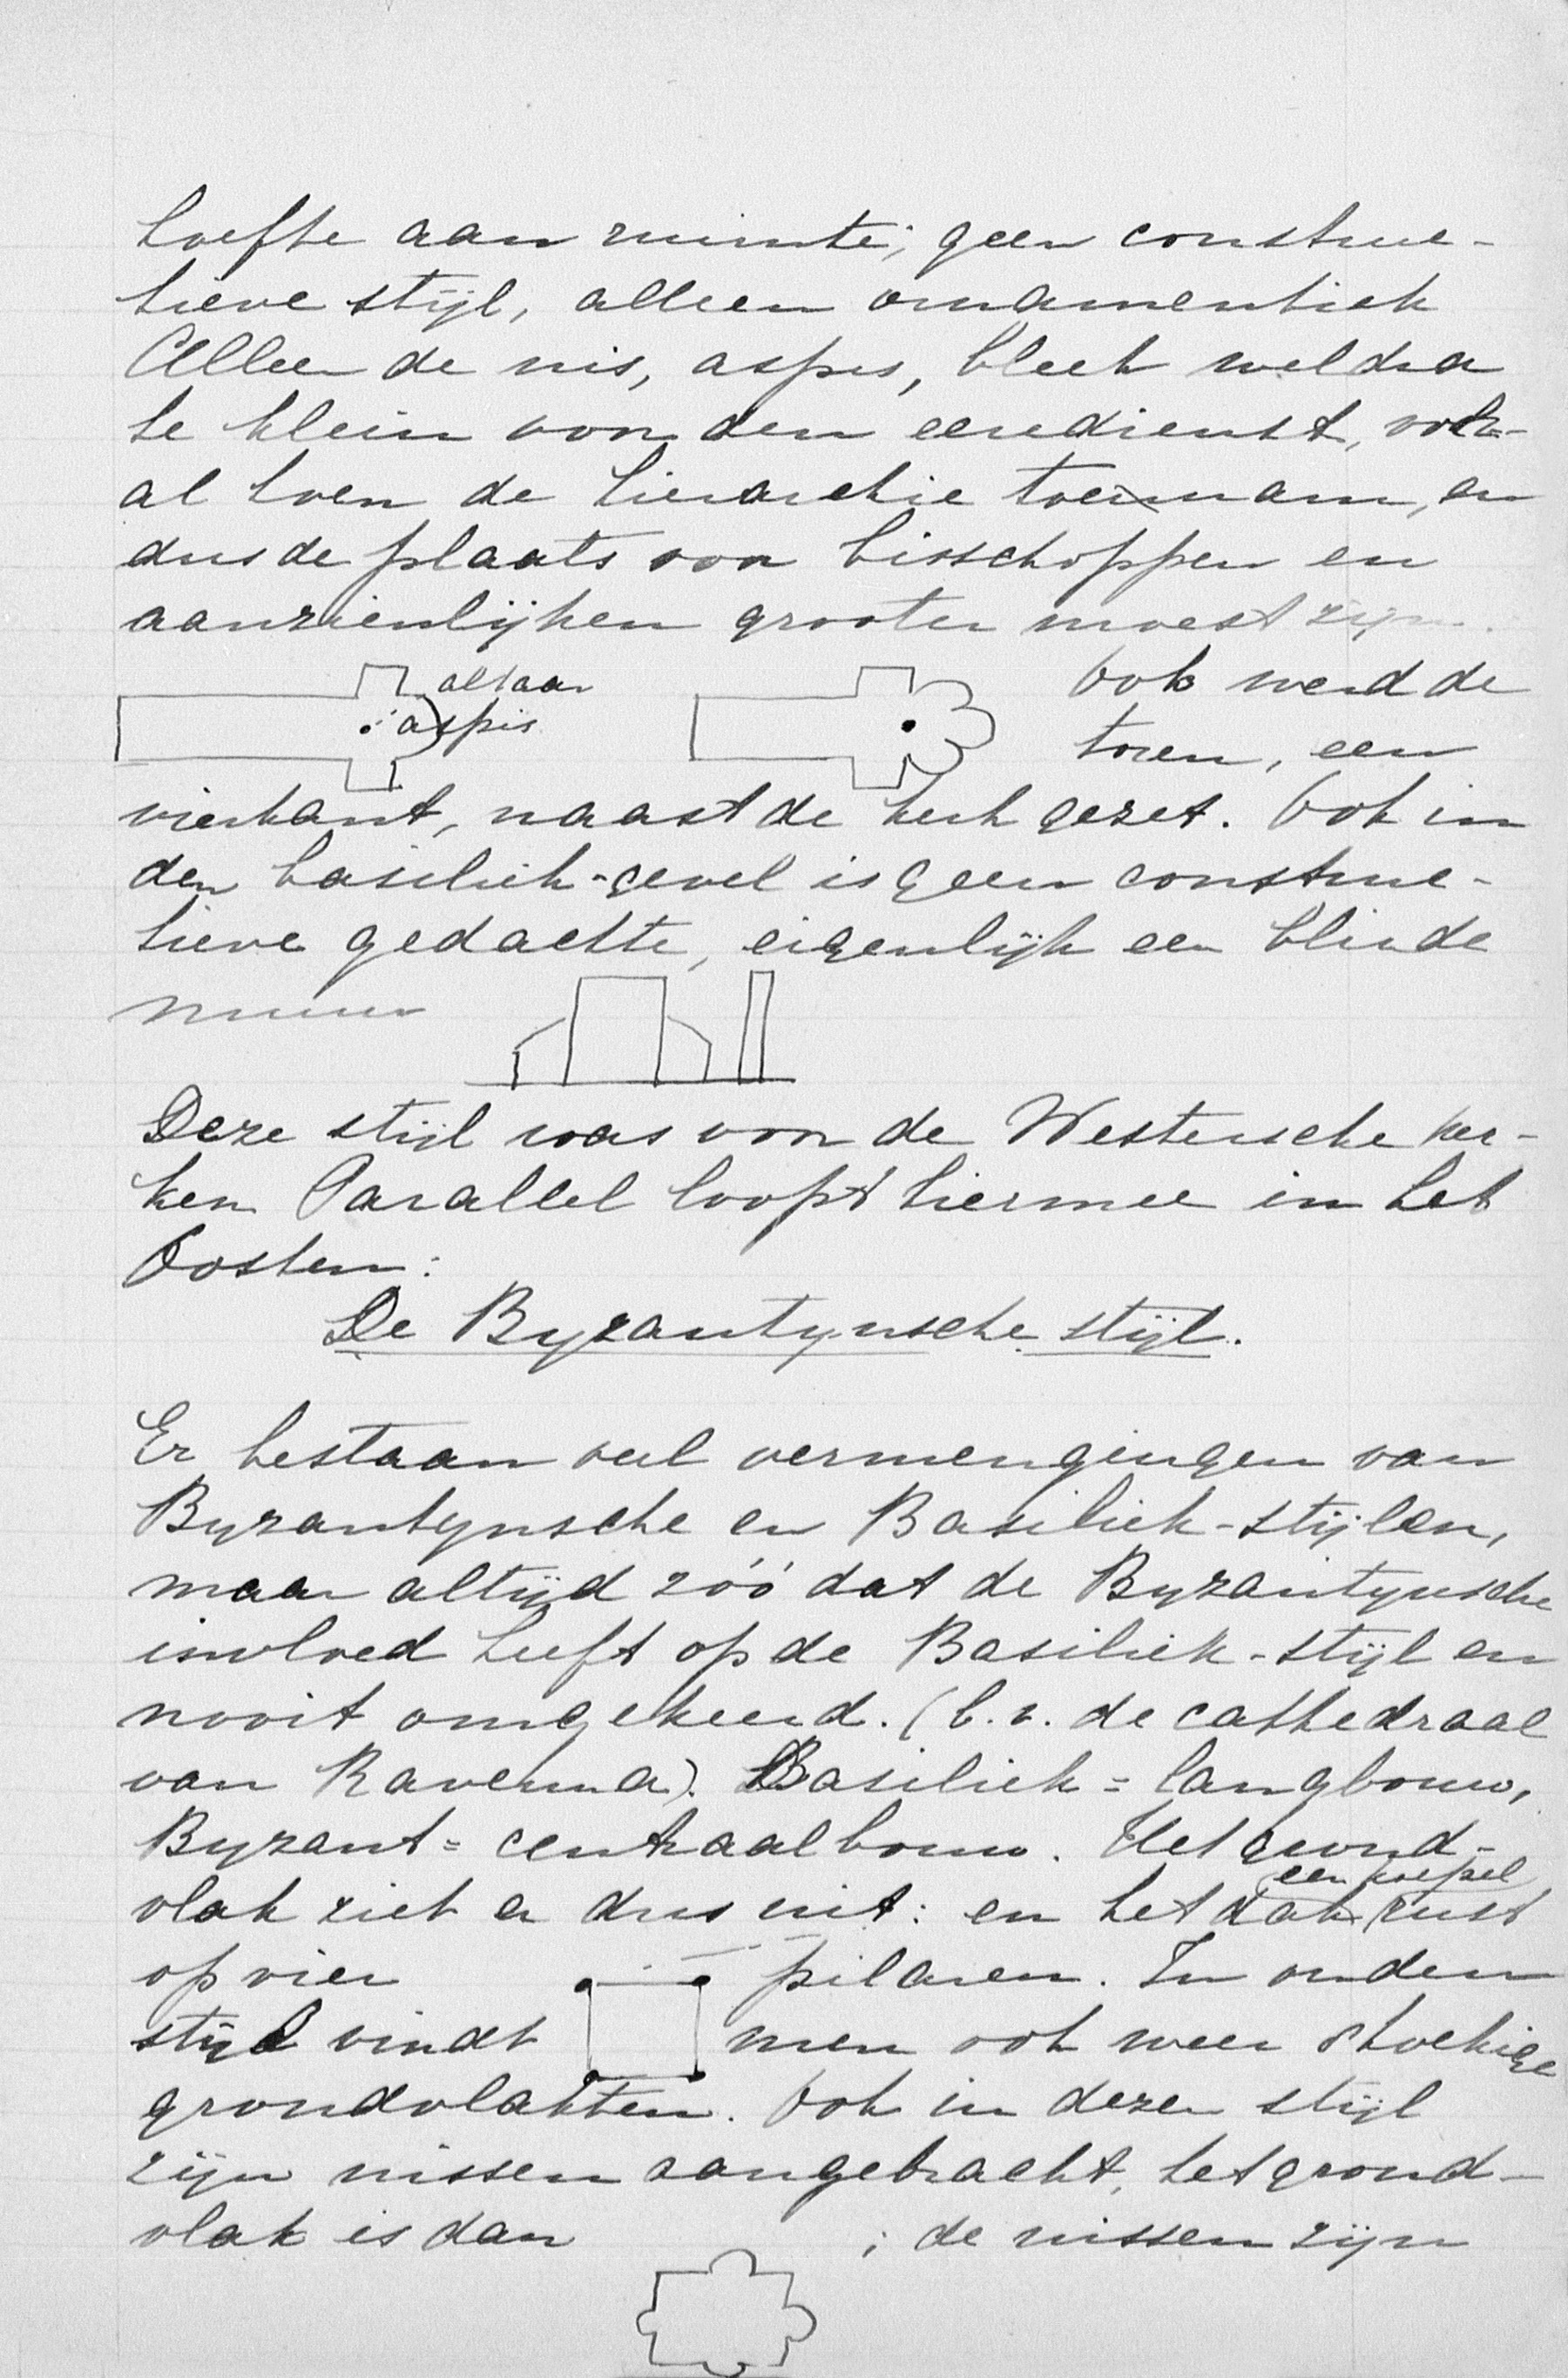 hoefte aan ruimte; geen construc-
tieve stijl, alleen ornamentiek
Alleen de nis, aspis, bleek weldra
te klein voor den eeredienst, voor-
al toen de hierarchie toenam, en
dus de plaats voor bisschoppen en
aanzienlijken grooter moest zijn.
altaar
aspis
Ook werd de
toren, een
vierkant, naast de kerk gezet. Ook in
den basiliek-gevel is geen construc-
tieve gedachte, eigenlijk een blinde
muur
Deze stijl was voor de Westersche ker-
ken Parallel loopt hiermee in het
Oosten:
De Byzantynsche stijl.
Er bestaan veel vermengingen van
Byzantynsche en Basiliek-stijlen,
maar altijd zóó dat de Byzantynsche
invloed heeft op de Basiliek-stijl en
nooit omgekeerd. (b.v. de cathedraal
van Ravenna). Basiliek = langbouw,
Byzant = centraalbouw. Het grond-
een koepel
vlak ziet er dus uit: en het dak rust
op vier pilaren. In ouden
stijl vindt men ook weer 8hoekige
grondvlakten. Ook in dezen stijl
zijn nissen aangebracht, het grond-
vlak is dan ; de nissen zijn